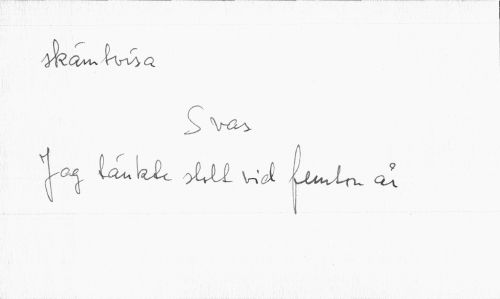 skämtvisa
Svar
Jag tänkte stolt vid femton år